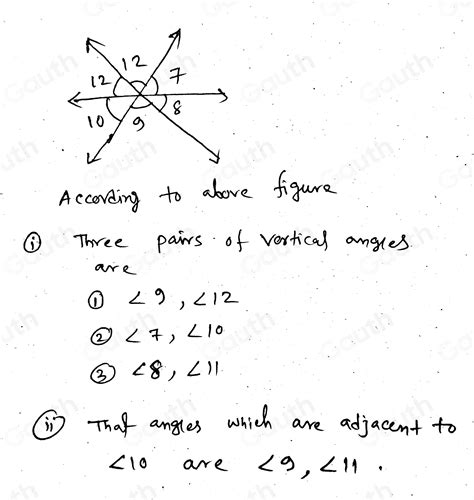 12
12 7
10 9 8
According to above figure
(i) Three pairs of vertical angles
are
① ∠9, ∠12
② ∠7, ∠10
③ ∠8, ∠11
(ii) That angles which are adjacent to
∠10 are ∠9, ∠11.